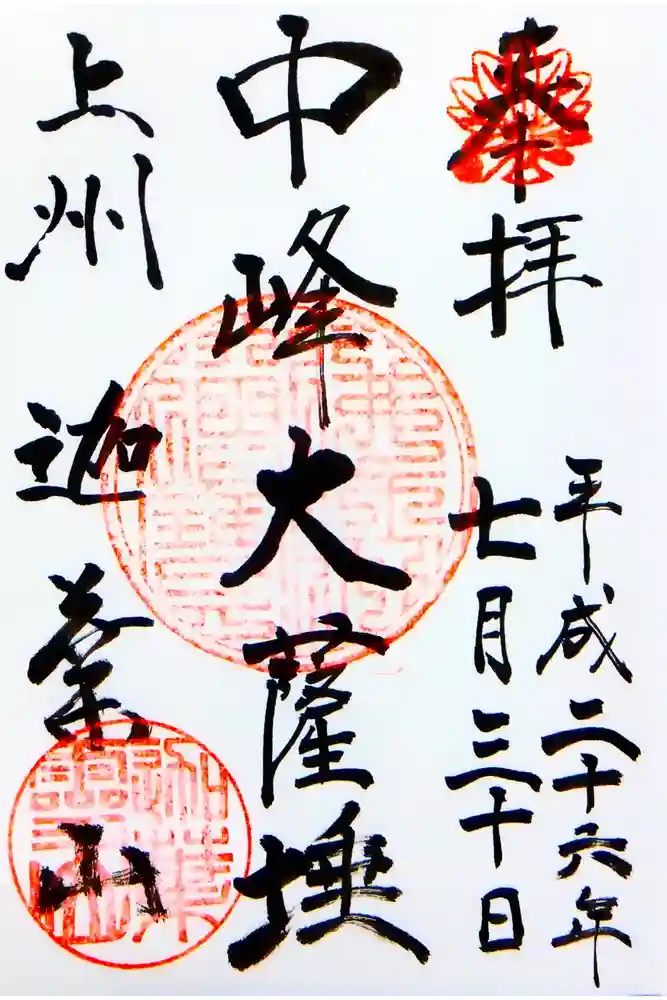 奉拝
平成二十六年
七月三十日
中峰大薩埵
上州 迦葉山